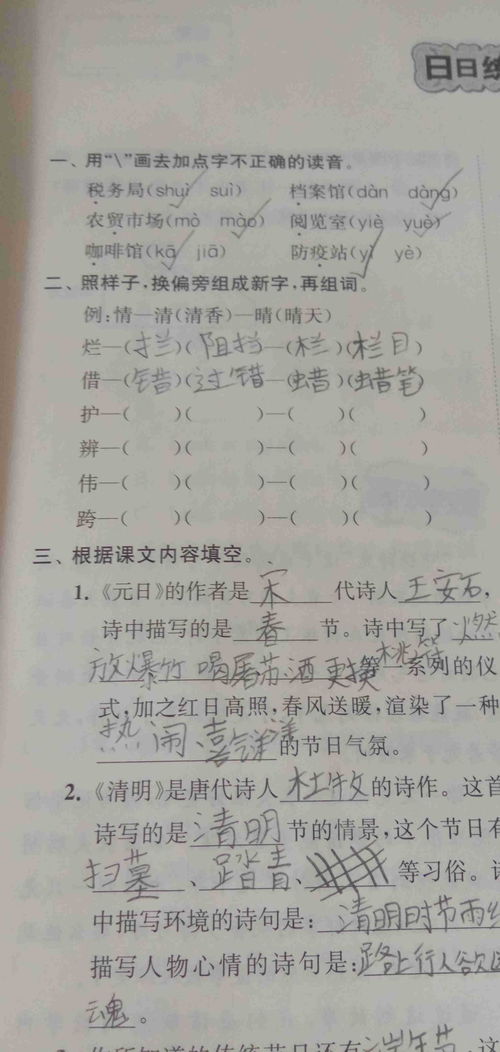 日日练
一、用“\”画去加点字不正确的读音。
税务局(shuì suì) 档案馆(dàn dàng)
农贸市场(mò mào) 阅览室(yiè yuè)
咖啡馆(kā jiā) 防疫站(yì yè)
二、照样子,换偏旁组成新字,再组词。
例:情—清(清香)—晴(晴天)
烂—(拦)(阻拦—(栏)(栏目)
借—(错)(过错—(蜡)(蜡笔)
护—( )( )—( )( )
辨—( )( )—( )( )
伟—( )( )—( )( )
跨—( )( )—( )( )
三、根据课文内容填空。
1.《元日》的作者是 宋 代诗人 王安石,
诗中描写的是 春 节。诗中写了 燃
放爆竹 喝屠苏酒 更换桃符 等一系列的仪
式,加之红日高照,春风送暖,渲染了一种
热闹、喜气洋洋 的节日气氛。
2.《清明》是唐代诗人 杜牧 的诗作。这首
诗写的是 清明 节的情景,这个节日有
扫墓、踏青、 等习俗。诗
中描写环境的诗句是: 清明时节雨
描写人物心情的诗句是:路上行人欲
魂。